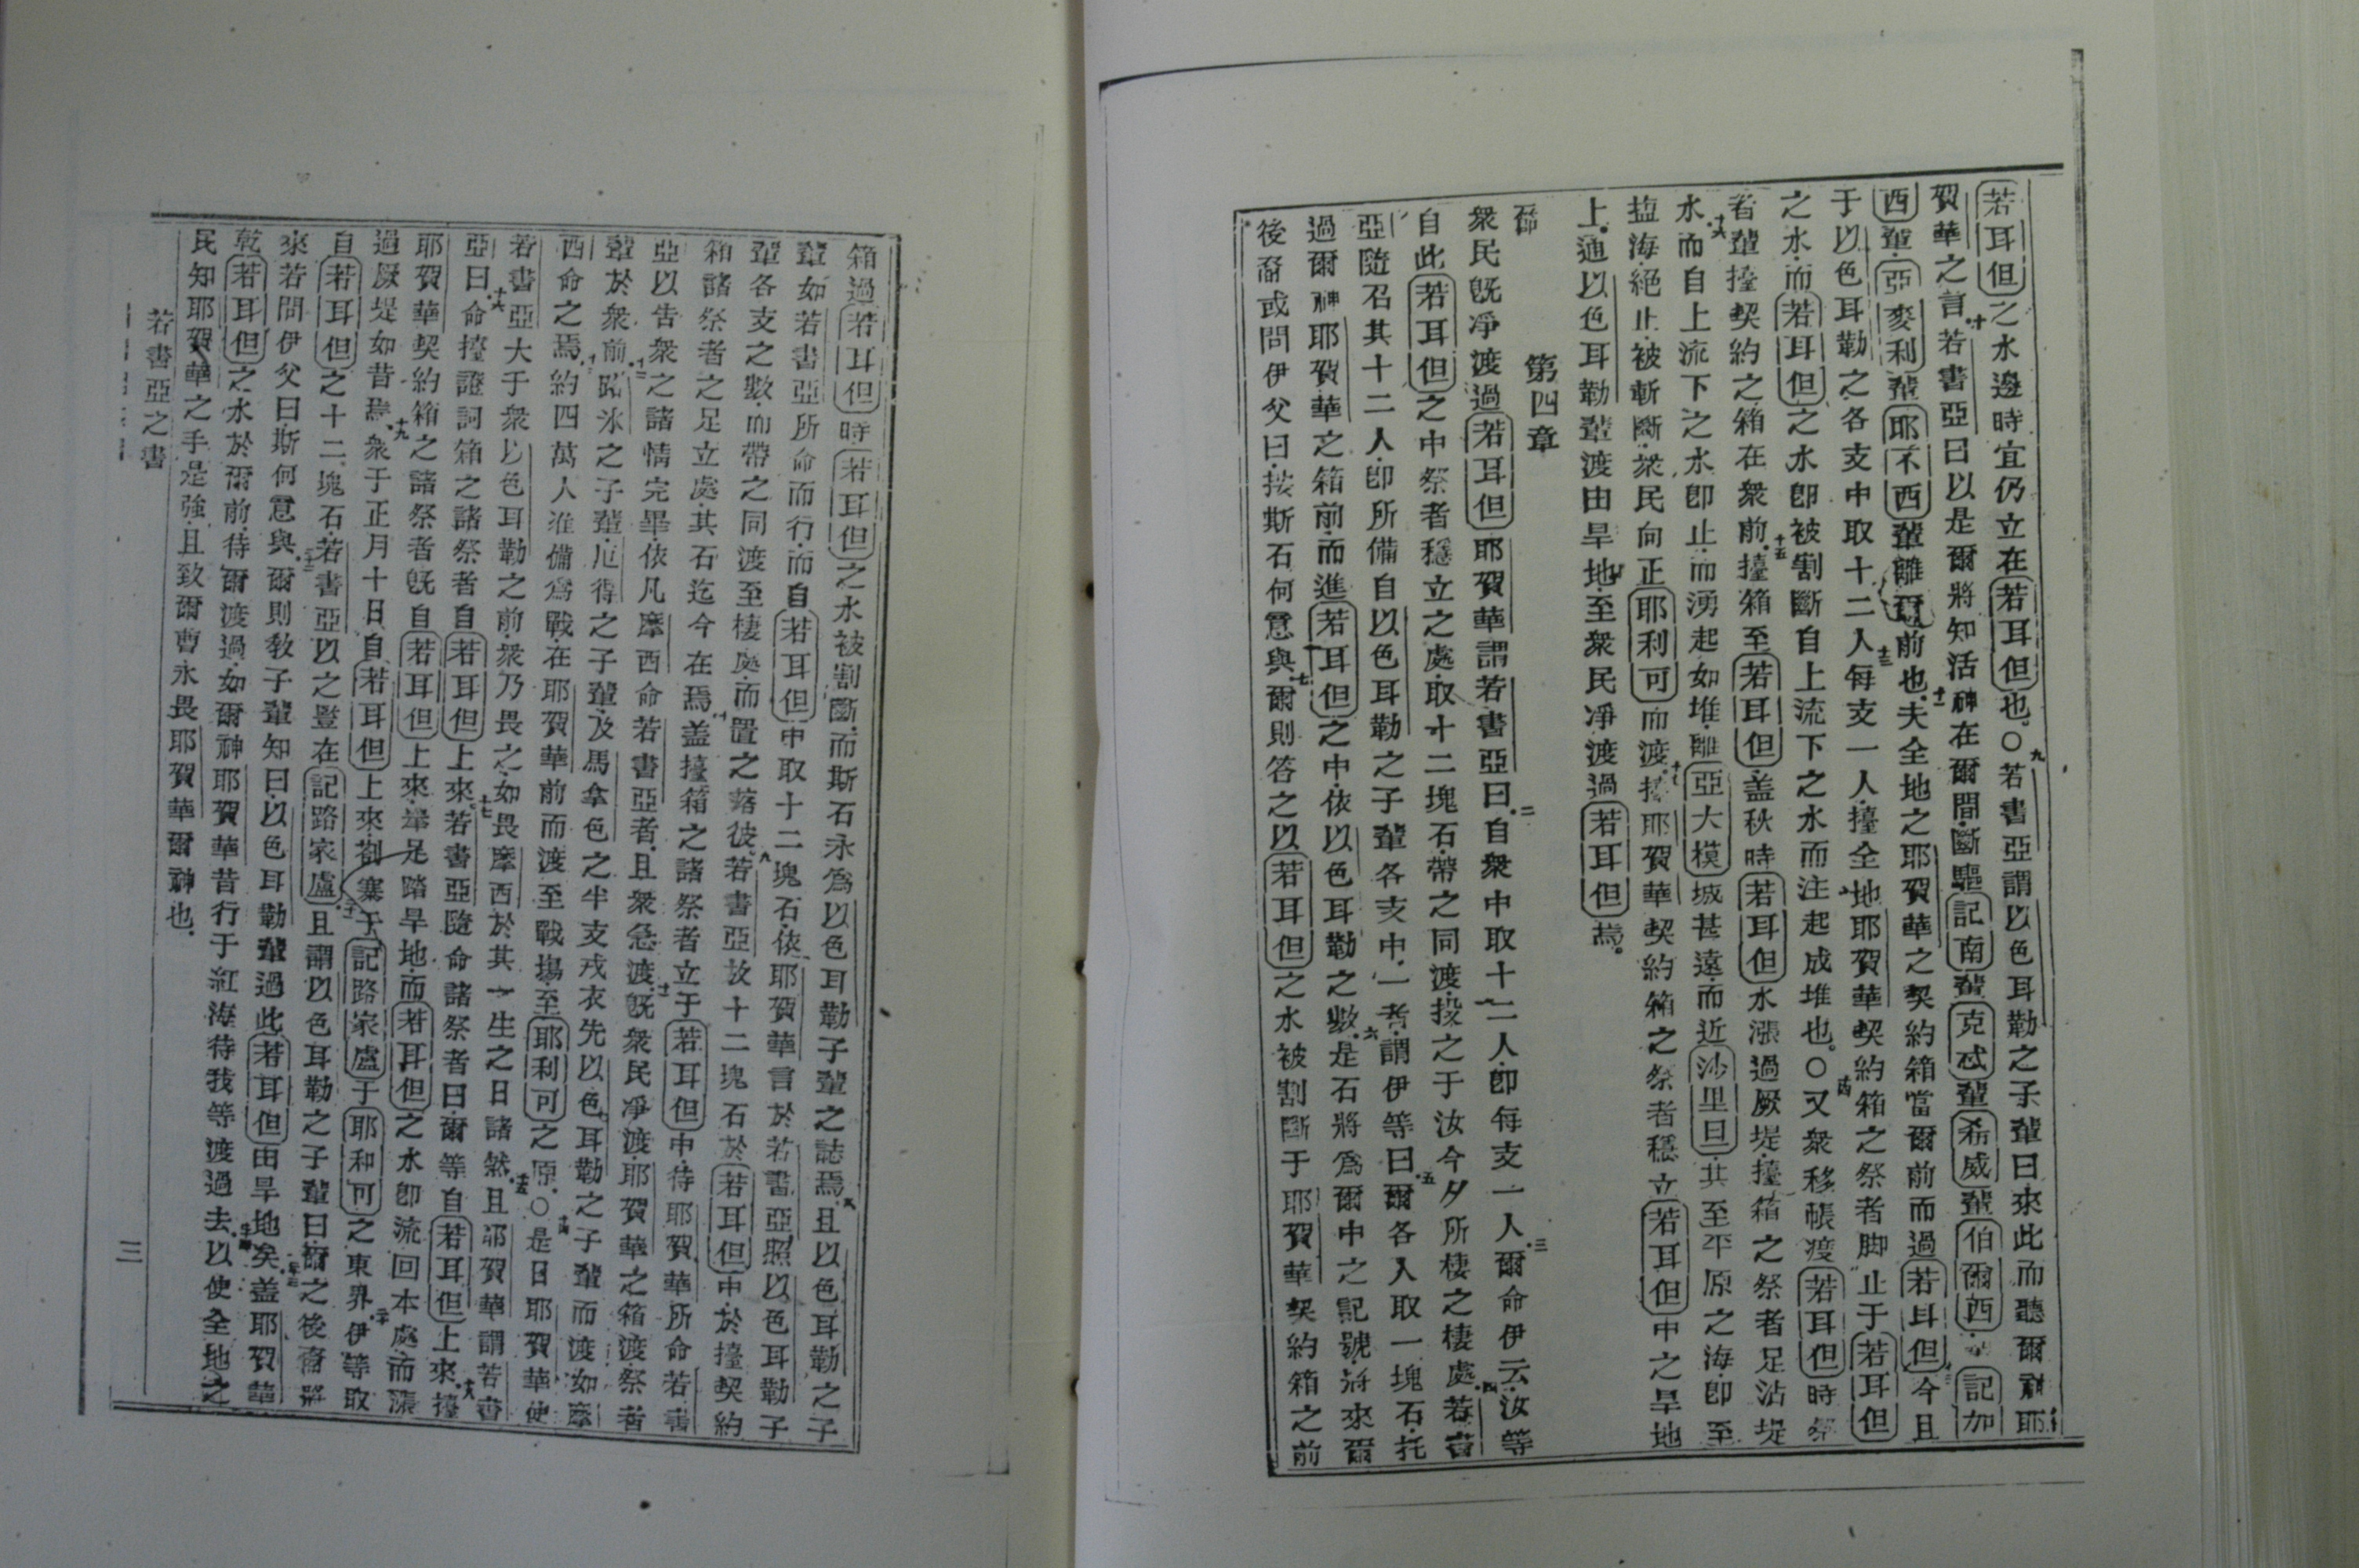 若耳但之水邊時宜仍立在若耳但也。○九若書亞謂以色耳勒之子輩曰來此而聽爾神耶
賀華之言十若書亞曰以是爾將知活神在爾間斷驅記南輩克忒輩希威輩伯爾西輩記加
西輩亞麥利輩耶不西輩離爾前也十一夫全地之耶賀華之契約箱當爾前而過若耳但十二今且
于以色耳勒之各支中取十二人每支一人十三擡全地耶賀華契約箱之祭者脚止于若耳但
之水而若耳但之水卽被割斷自上流下之水而注起成堆也。○十四又衆移帳渡若耳但時祭
者輩擡契約之箱在衆前十五擡箱至若耳但蓋秋時若耳但水漲過厥堤擡箱之祭者足沾堤
水十六而自上流下之水卽止而湧起如堆離亞大模城甚遠而近沙里旦其至平原之海卽至
鹽海絕止被斬斷衆民向正耶利可而渡十七擡耶賀華契約箱之祭者穩立若耳但中之旱地
上通以色耳勒輩渡由旱地至衆民凈渡過若耳但焉。
第四章
衆民旣凈渡過若耳但耶賀華謂若書亞曰二自衆中取十二人卽每支一人三爾命伊云汝等
自此若耳但之中祭者穩立之處取十二塊石帶之同渡投之于汝今夕所棲之棲處四若書
亞隨召其十二人卽所備自以色耳勒之子輩各支中一者五謂伊等曰爾各人取一塊石托
過爾神耶賀華之箱前而進若耳但之中依以色耳勒之數六是石將爲爾中之記號將來爾
後裔或問伊父曰按斯石何意與爾七則答之以若耳但之水被割斷于耶賀華契約箱之前
箱過若耳但時若耳但之水被割斷而斯石永爲以色耳勒子輩之誌焉八且以色耳勒之子
輩如若書亞所命而行而自若耳但中取十二塊石依耶賀華言於若書亞照以色耳勒子
輩各支之數而帶之同渡至棲處而置之落彼九若書亞放十二塊石於若耳但中於擡契約
箱諸祭者之足立處其石迄今在焉十蓋擡箱之諸祭者立于若耳但中待耶賀華所命若書
亞以告衆之諸情完畢依凡摩西命若書亞者且衆急渡十一旣衆民凈渡耶賀華之箱渡祭者
輩於衆前十二路氷之子輩厄得之子輩及馬拿色之半支戎衣先以色耳勒之子輩而渡如摩
西命之焉十三約四萬人准備爲戰在耶賀華前而渡至戰場至耶利可之原。○十四是日耶賀華使
若書亞大于衆以色耳勒之前衆乃畏之如畏摩西於其一生之日諸然十五且耶賀華謂若書
亞曰十六命擡證詞箱之諸祭者自若耳但上來十七若書亞隨命諸祭者曰爾等自若耳但上來十八擡
耶賀華契約箱之諸祭者旣自若耳但上來舉足踏旱地而若耳但之水卽流回本處而漲
過厥堤如昔焉十九衆于正月十日自若耳但上來剳寨于記路家盧于耶利可之東界二十伊等取
自若耳但之十二塊石若書亞以之豎在記路家盧二十一且謂以色耳勒之子輩曰爾之後裔將
來若問伊父曰斯何意與二十二爾則敎子輩知曰以色耳勒輩過此若耳但由旱地矣二十三蓋耶賀華
乾若耳但之水於爾前待爾渡過如爾神耶賀華昔行于紅海待我等渡過去二十四以使全地之
民知耶賀華之手是強且致爾曹永畏耶賀華爾神也
若書亞之書
三